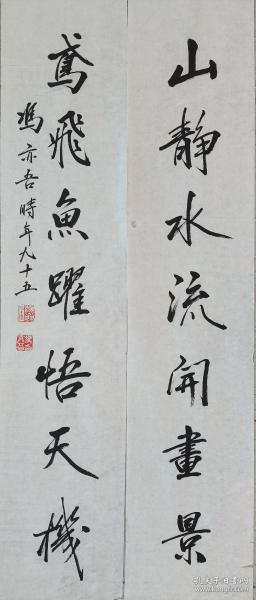 山静水流開畫景
鳶飛魚躍悟天機
馮亦吾時年九十五